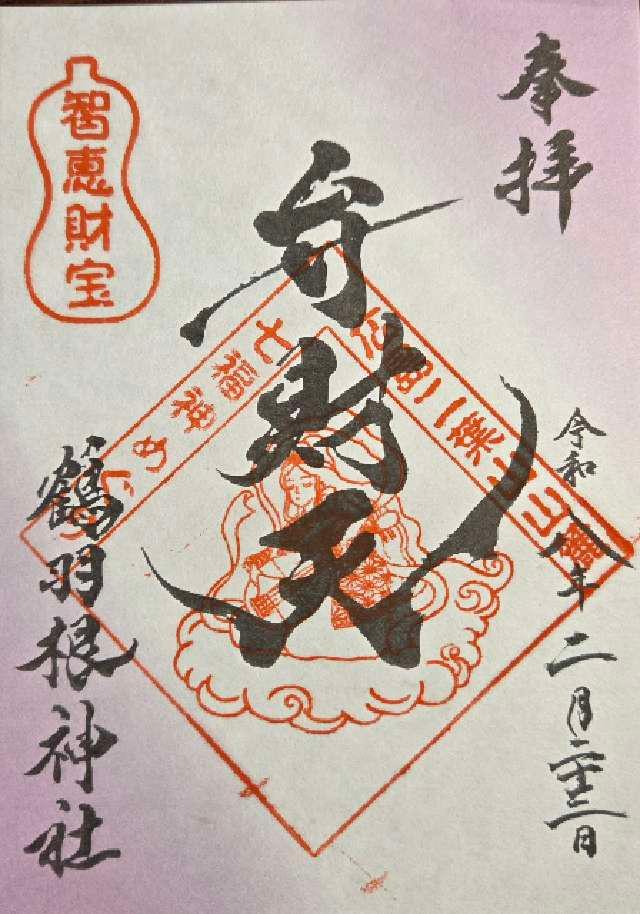 奉拝
弁財天
令和八年二月二十三日
鶴羽根神社
智恵財宝
七福神めぐり
二葉山山麓